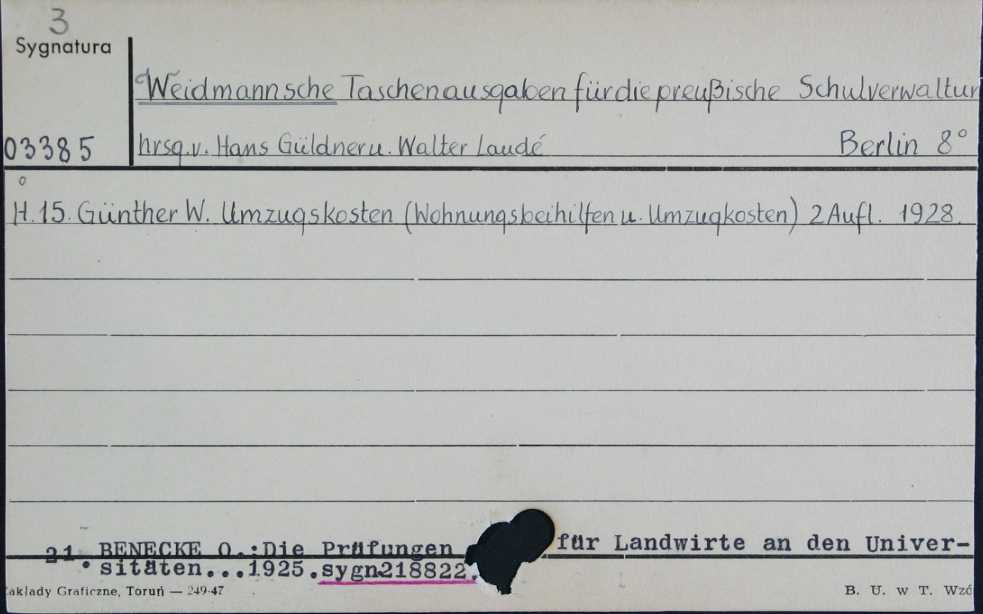 3
Sygnatura
Weidmannsche Taschenausgaben für die preußische Schulverwaltun
03385
hrsg. v. Hans Güldner u. Walter Laudé Berlin 8°
H. 15. Günther W. Umzugskosten (Wohnungsbeihilfen u. Umzugkosten) 2 Aufl. 1928.
21. BENECKE O.:Die Prüfungen für Landwirte an den Univer-
sitäten...1925.sygn218822.
akłady Graficzne, Toruń — 249-47 B. U. w T. Wzó